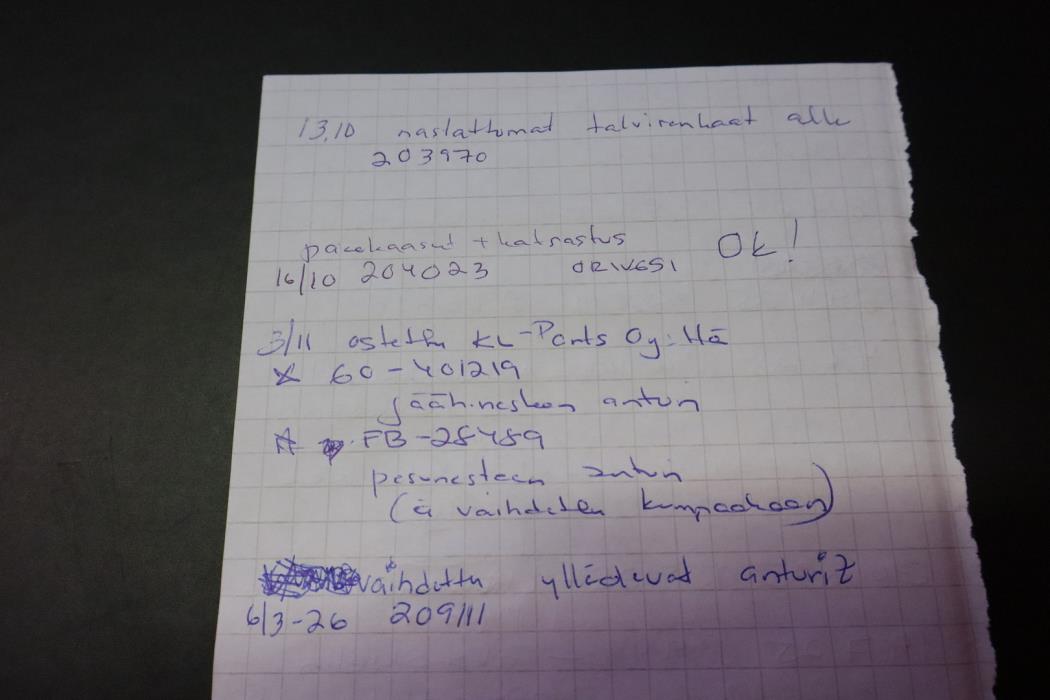 13.10 nastattomat talvirenkaat alle
203970
pakokaasut + katsastus OK!
16/10 204023 ORIVESI
3/11 ostettu KL-Parts Oy:ltä
60-401219
jäähnesteen anturi
FB-28489
pesunesteen anturi
(ei vaihdettu kumpaakaan)
vaihdettu ylläolevat anturit
6/3-26 209111